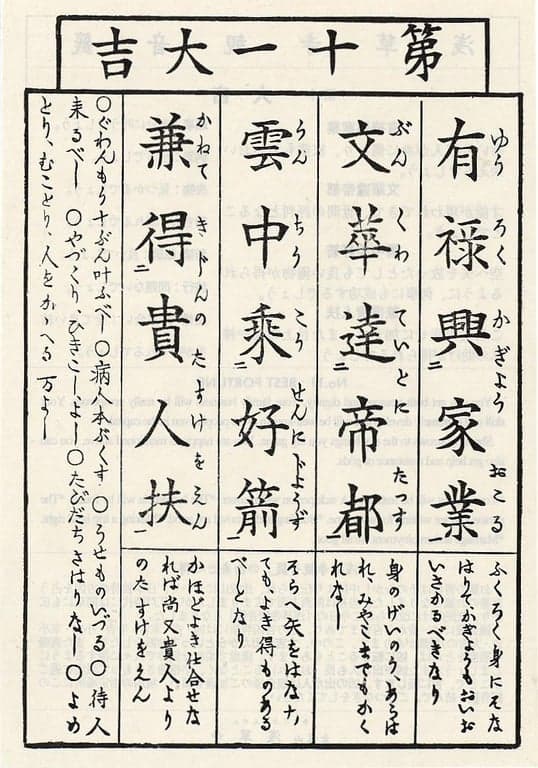 第十一大吉
有祿興家業
ゆうろくかぎようおこる
ふくろく身にそな
はりてかぎようもおいお
いさかるべきなり
文華達帝都
ぶんくわていとにたつす
身のげいのう、あらは
れ、みやこまでもかく
れなし
雲中乘好箭
うんちうこうせんにじようず
そらへ矢をはなち
てもよき得ものある
べしとなり
兼得貴人扶
かねてきじんのたすけをえん
かほどよき仕合せな
れば尚又貴人より
のたすけをえん
○ぐわんもう十ぶん叶ふべし○病人本ぷくす○うせものいづる○待人
来るべし○やづくりひきこしよし○たびだちさはりなし○よめ
とり、むことり、人をかゝへる万よし